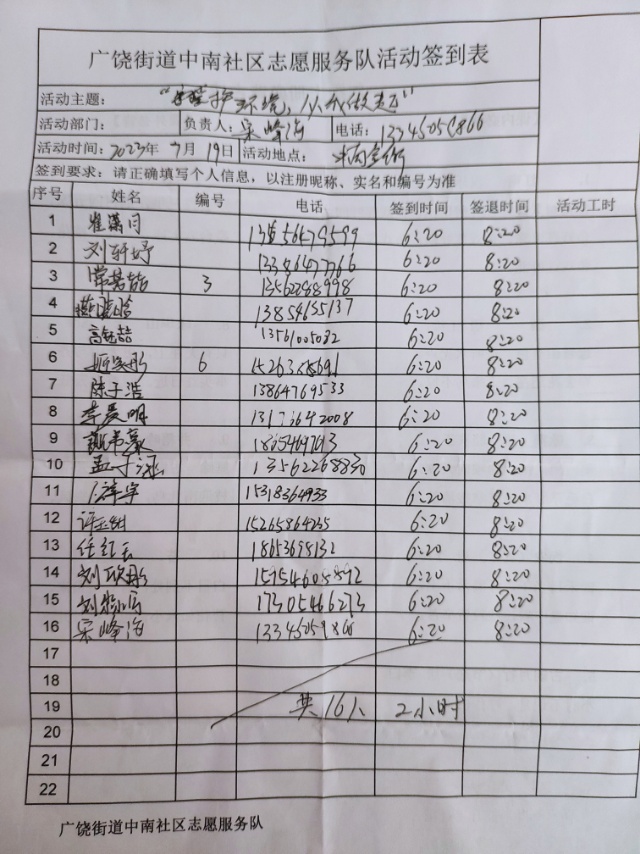 广饶街道中南社区志愿服务队活动签到表
活动主题：" 护环境，从我做起"
活动部门： 负责人：宋峰海 电话：13345059866
活动时间：2023年7月19日 活动地点：
签到要求：请正确填写个人信息，以注册昵称、实名和编号为准
序号 姓名 编号 电话 签到时间 签退时间 活动工时
1 崔潇月 6:20 8:20
2 刘轩妤 13386477766 6:20 8:20
3 常 3 13562288998 6:20 8:20
4 13854655137 6:20 8:20
5 高 喆 13561005032 6:20 8:20
6 6 6:20 8:20
7 陈子浩 13864769533 6:20 8:20
8 李 明 13173642008 6:20 8:20
9 6:20 8:20
10 孟子 6:20 8:20
11 15318364933 6:20 8:20
12 许 15265864235 6:20 8:20
13 任红云 18653698132 6:20 8:20
14 刘欣彤 6:20 8:20
15 刘 17305466273 6:20 8:20
16 宋峰海 6:20 8:20
17
18
19 共16人 2小时
20
21
22
广饶街道中南社区志愿服务队